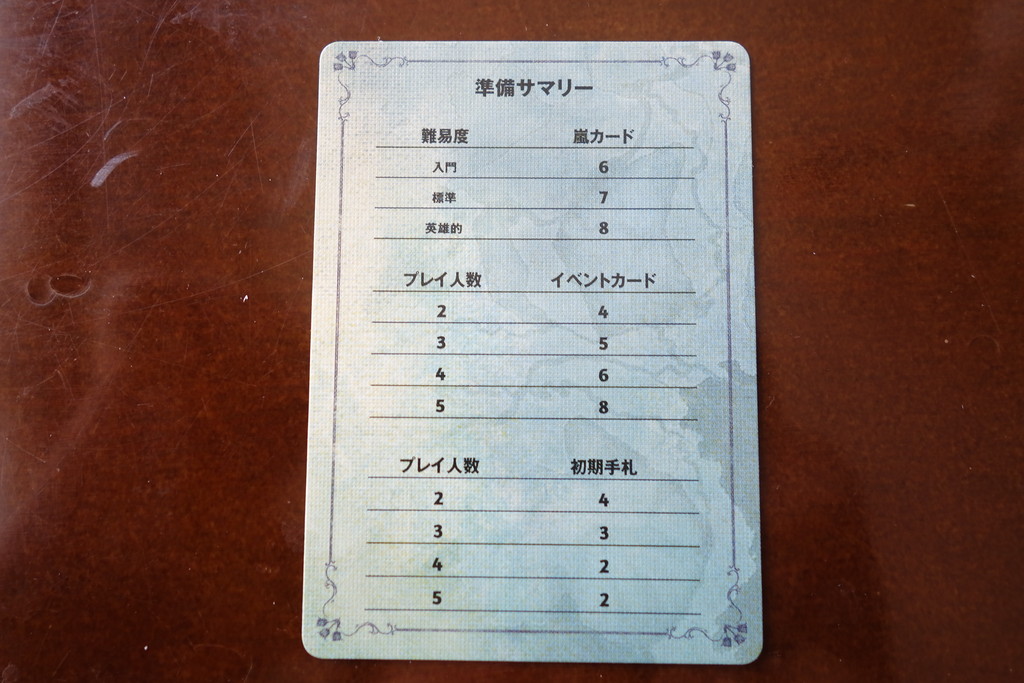 準備サマリー
難易度 嵐カード
入門 6
標準 7
英雄的 8
プレイ人数 イベントカード
2 4
3 5
4 6
5 8
プレイ人数 初期手札
2 4
3 3
4 2
5 2